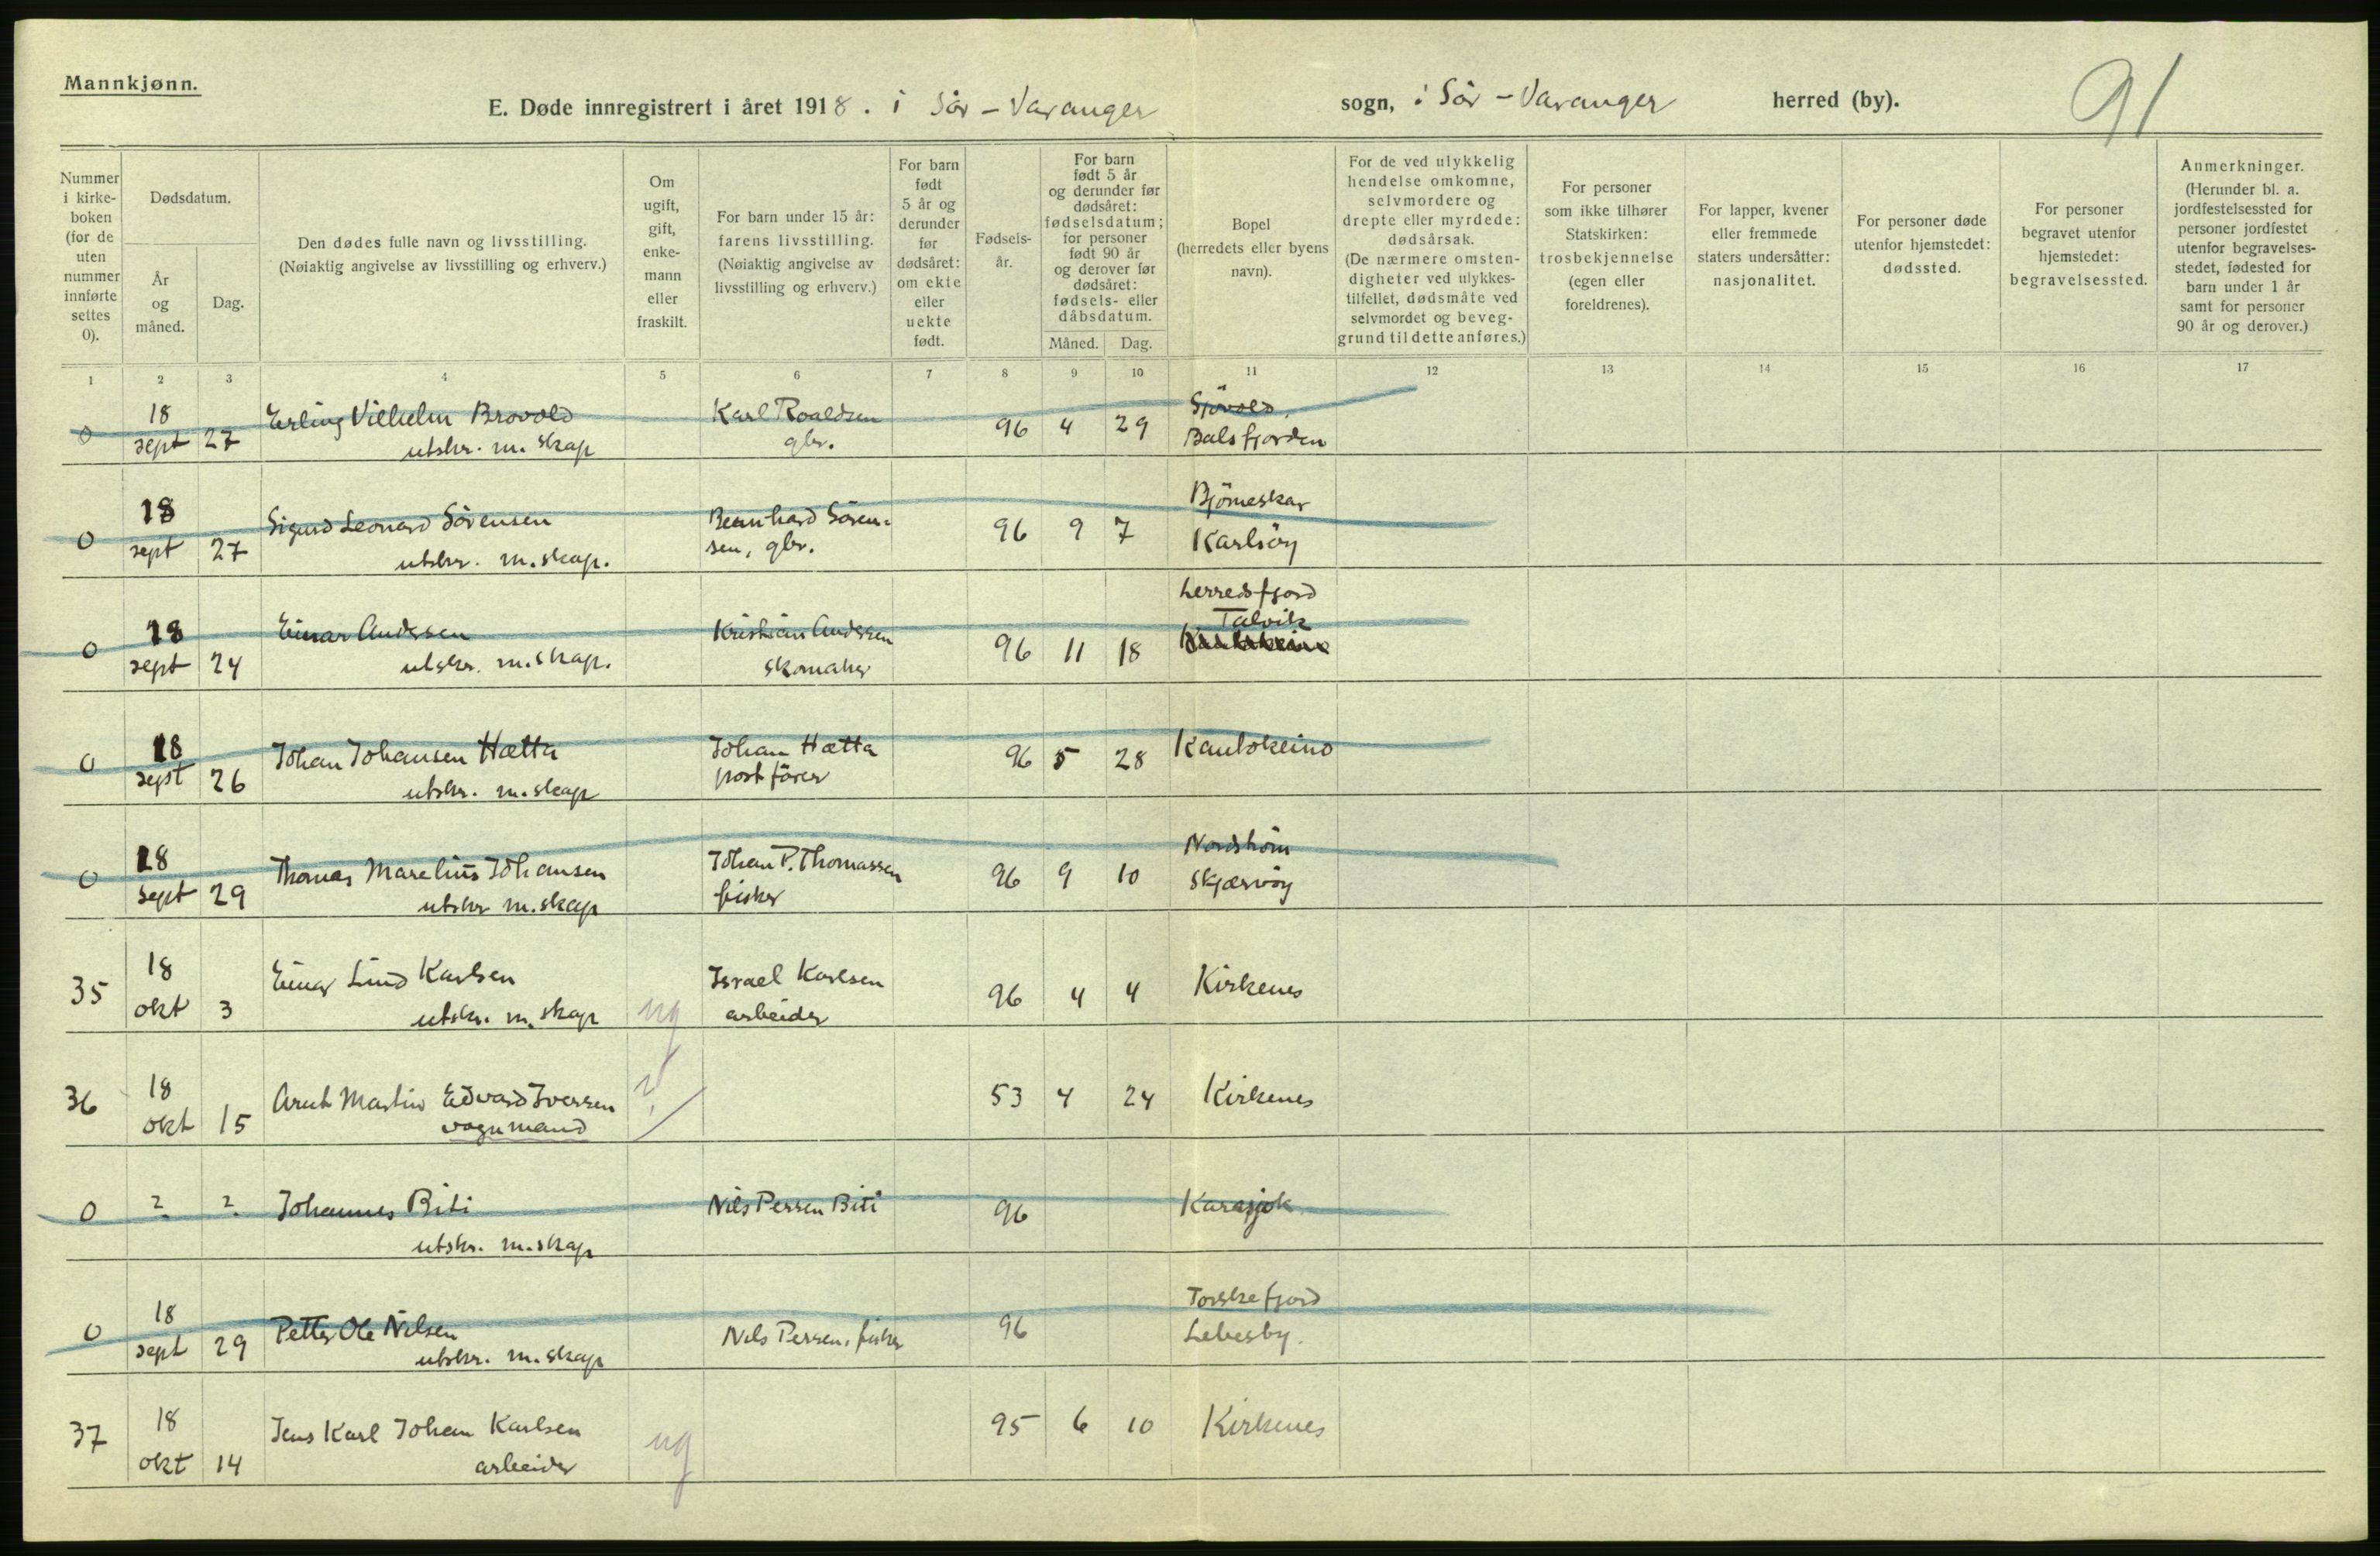 Mannkjønn.
E. Døde innregistrert i året 1918. i Sör-Varanger sogn, i Sör-Varanger herred (by).
91
Nummer i kirke-boken (for de uten nummer innførte settes 0).
Dødsdatum.
År og måned.
Dag.
Den dødes fulle navn og livsstilling.
(Nøiaktig angivelse av livsstilling og erhverv.)
Om ugift, gift, enke-mann eller fraskilt.
For barn under 15 år: farens livsstilling.
(Nøiaktig angivelse av livsstilling og erhverv.)
For barn født 5 år og derunder før dødsåret: om ekte eller uekte født.
Fødsels-år.
For barn født 5 år og derunder før dødsåret: fødselsdatum; for personer født 90 år og derover før dødsåret: fødsels- eller dåbsdatum.
Måned.
Dag.
Bopel (herredets eller byens navn).
For de ved ulykkelig hendelse omkomne, selvmordere og drepte eller myrdede: dødsårsak.
(De nærmere omsten-digheter ved ulykkes-tilfellet, dødsmåte ved selvmordet og beveg-grund til dette anføres.)
For personer som ikke tilhører Statskirken: trosbekjennelse (egen eller foreldrenes).
For lapper, kvener eller fremmede staters undersåtter: nasjonalitet.
For personer døde utenfor hjemstedet: dødssted.
For personer begravet utenfor hjemstedet: begravelsessted.
Anmerkninger.
(Herunder bl. a. jordfestelsessted for personer jordfestet utenfor begravelses-stedet, fødested for barn under 1 år samt for personer 90 år og derover.)
1 2 3 4 5 6 7 8 9 10 11 12 13 14 15 16 17
18 Erling Vilhelm Brovold Karl Roaldsen Sjövold,
0 sept 27 utskr. m. skap gbr. 96 4 29 Balsfjorden
18 Sigurd Leonard Sörensen Bernhard Sören- Björneskar
0 sept 27 utskr. m. skap. sen, gbr. 96 9 7 Karlsöy
Lerredsfjord
18 Einar Andersen Kristian Andersen Talvik
0 sept 24 utskr. m. skap. skomaker 96 11 18
18 Johan Johansen Hætta Johan Hætta Kautokeino
0 sept 26 utskr. m. skap postförer 96 5 28
18 Thomas Marelius Johansen Johan P. Thomassen
0 sept 29 utskr m. skap fisker 96 9 10 Skjærvöy
18 Einar Lind Karlsen Israel Karlsen Kirkenes
35 okt 3 utskr. m. skap ug arbeider 96 4 4
36 18 Arnt Martin Edvard Iversen ? 53 4 24 Kirkenes
okt 15 vognmand
0 ? ? Johannes Biti Nils Persen Biti 96 Karasjok
utskr. m. skap
18 Torskefjord
0 sept 29 Petter Ole Nilsen Nils Persen, fisker 96 Lebesby.
utskr. m. skap
37 18 Jens Karl Johan Karlsen ug 95 6 10 Kirkenes
okt 14 arbeider